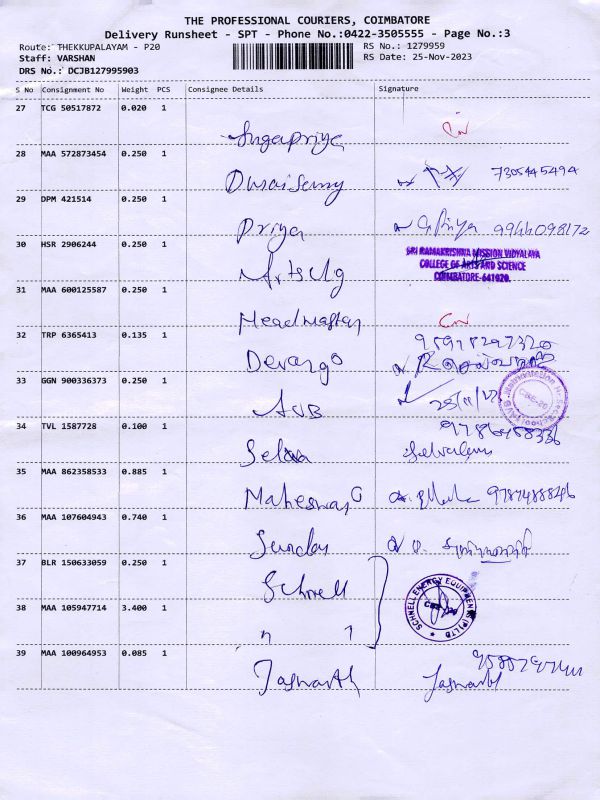 THE PROFESSIONAL COURIERS, COIMBATORE
Delivery Runsheet - SPT - Phone No.:0422-3505555 - Page No.:3
Route: THEKKUPALAYAM - P20 RS No.: 1279959
Staff: VARSHAN RS Date: 25-Nov-2023
DRS No.: DCJB127995903
S No Consignment No Weight PCS Consignee Details Signature
27 TCG 50517872 0.020 1
Sugapriya
28 MAA 572873454 0.250 1
Duraisamy 7305445494
29 DPM 421514 0.250 1
Priya G Priya 9944098172
30 HSR 2906244 0.250 1
SRI RAMAKRISHNA MISSION VIDYALAYA
COLLEGE OF ARTS AND SCIENCE
COIMBATORE-641020.
Arts clg
31 MAA 600125587 0.250 1
Headmaster
32 TRP 6365413 0.135 1
Devang
33 GGN 900336373 0.250 1
AVB 25/11/23
34 TVL 1587728 0.100 1
Selva
35 MAA 862358533 0.885 1
Maheswari
36 MAA 107604943 0.740 1
Sundar
37 BLR 150633059 0.250 1
Schnell
SCHNELL ENERGY EQUIPMENTS (P) LTD
CBE-20
38 MAA 105947714 3.400 1
39 MAA 100964953 0.085 1
Jaswanth Jaswanth